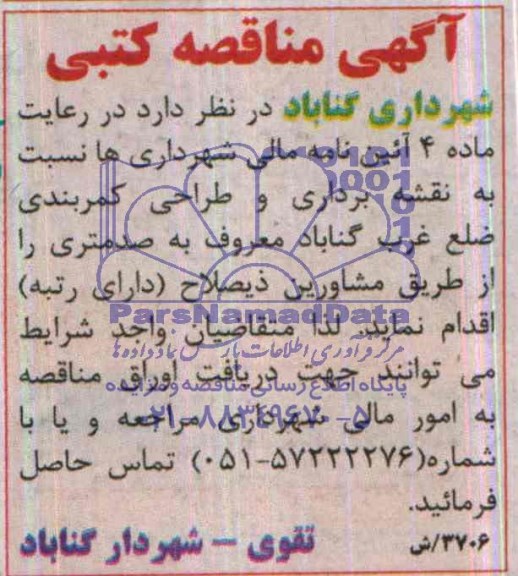 آگهی مناقصه کتبی
شهرداری گناباد در نظر دارد در رعایت
ماده ۴ آئین نامه مالی شهرداری ها نسبت
به نقشه برداری و طراحی کمربندی
ضلع غرب گناباد معروف به صدمتری را
از طریق مشاورین ذیصلاح (دارای رتبه)
ParsNamadData
اقدام نماید لذا متقاضیان واجد شرایط
مرکز فرآوری اطلاعات پارس نماد داده ها
می توانند جهت دریافت اوراق مناقصه
پایگاه اطلاع رسانی مناقصه و مزایده
به امور مالی شهرداری مراجعه و یا با
۰۲۱-۸۸۳۴۹۶۷۰-۵
شماره(۵۷۲۲۲۲۷۶-۰۵۱) تماس حاصل
فرمائید.
۳۷۰۶/ش
تقوی – شهردار گناباد